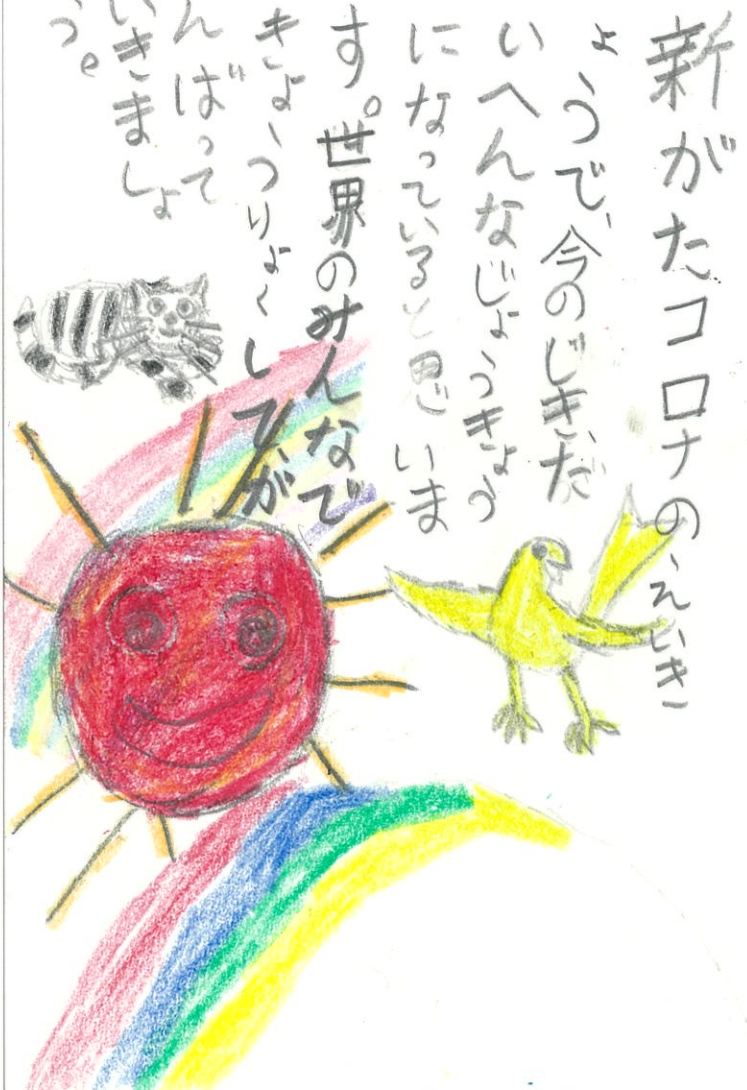 新がたコロナの、えいき
ょうで、今のじき、だ
いへんなじょうきょう
になっていると思いま
す。世界のみんなで
きょうりょくして、が
んばって
いきましょ
う。